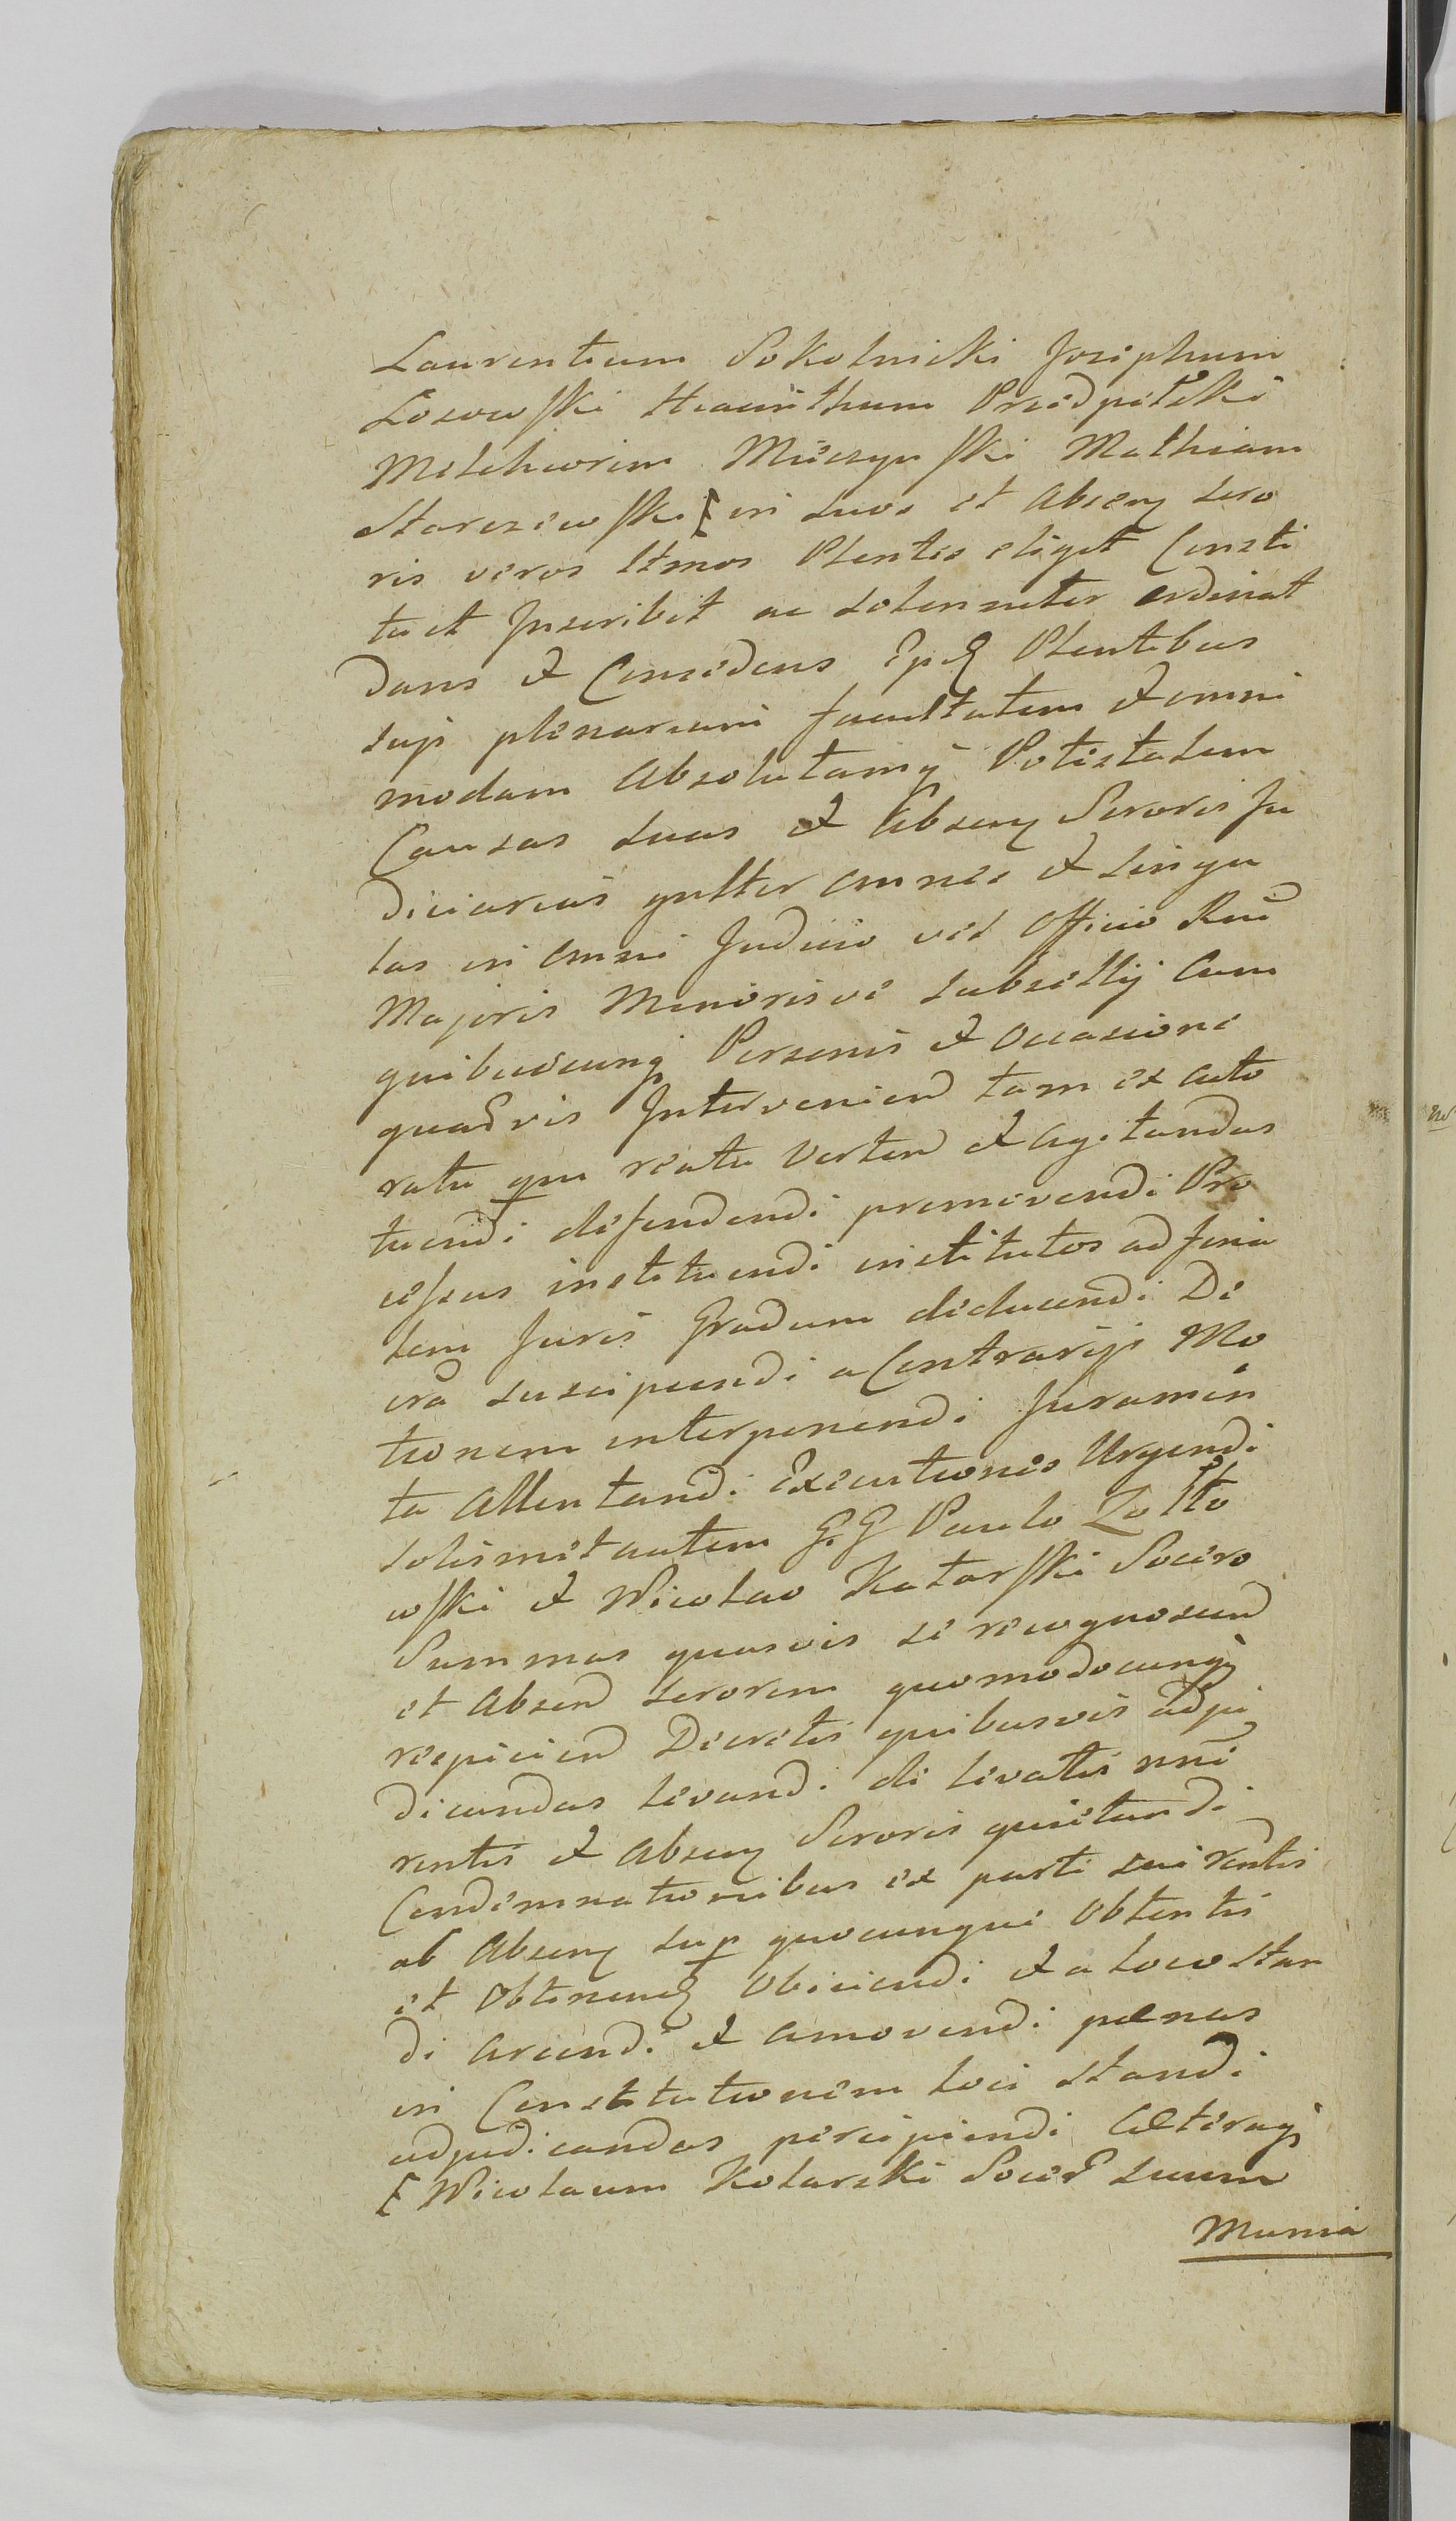 Laurentium Sokolnicki Josephum
Losowski Hiacinthum Przedpełski
Melchiorem Mieczynski Mathiam
Starczewski [ in suos et absen soro
ris veros ltmos Plentes eliget Consti
tuet Inscribet ac solenniter ordinat
dans et Concedens Plentibus
suis plenariam facultatem et omni
modam Absolutamq Potestatem
Causas suas et Absen Sororis Ju
diciarias gnlter omnes et singu
las in omni Judicio vel Officio Rni
Majoris Minorisve subsellij Cum
quibuscunq Personis et occasione
quavis Intervenien tam ex acto
ratu qm reatu verten et agitandas
tuendi defendendi promovendi Pro
cessus instituendi institutos ad fina
lem Juris Gradum deducendi De
cra suscipiendi a Contrarijs Mo
tionem interponendi Juramen
ta Attentandi Executiones Urgendi
solismet autem G.G Paulo Zołto
wski et Nicolao Kotarski Socero
Summas quasvis se recognoscen
et Absen sororem quomodocunq
respicien Decretis quibusvis adju
dicandas levandi de levatis nni
rentis et absen Sororis quietandi
Condemnationibus ex parte sui rentis
ab Absen sup quocunque obtentis
et obtinen Obiiciendi et a loco stan
di arcendi et amovendi pænas
in Constitutionem loci standi
adjudicandas percipiendi Cæteraq
[ Nicolaum Kotarski Socer suum
Munia